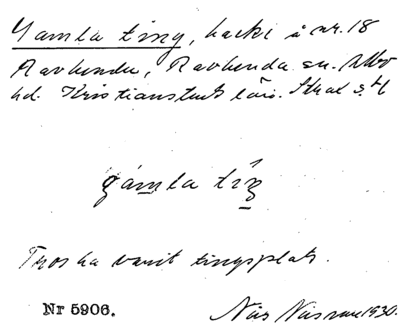 Gamla ting, backe å nr. 18
Ravlunda, Ravlunda sn. Albo
hd. Kristianstads län. Skal s4
gámla tíŋ
Tros ha varit tingsplats.
Nr 5906.
1930.